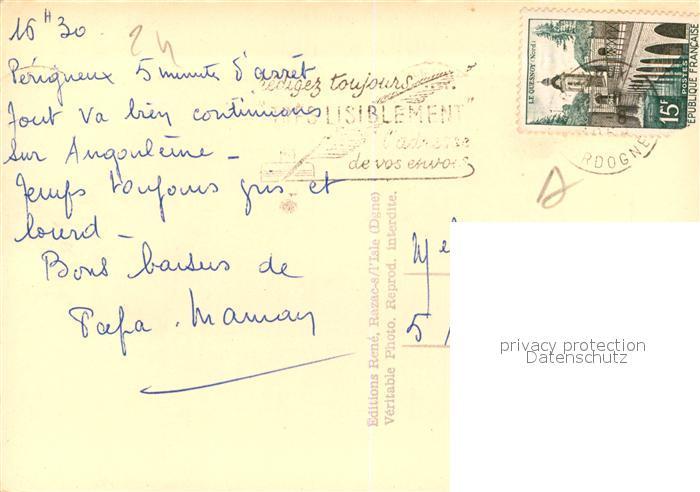 16 H 30
24
Périgueux 5 minutes d'arrêt
Tout va bien continuons
sur Angoulême -
Temps toujours gris et
lourd -
Bons baisers de
Papa. Maman
toujours
LISIBLEMENT"
l'adresse
de vos envois
LE QUESNOY (Nord)
15F
POSTES
REPUBLIQUE FRANÇAISE
RDOGNE
Editions René, Razac-s/l'Isle (Dgne)
Véritable Photo. Reprod. interdite.
5
privacy protection
Datenschutz